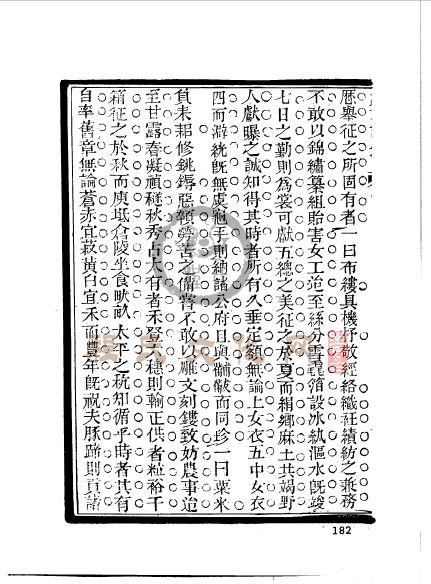 歷舉征之所固有者一曰布縷具機杼敬經絡織袵績紡之兼務
不敢以錦繡纂組貽害女工迨至絲分雪毳箔設冰紈漚水旣竣
七日之勤則為裳可獻五總之美征之於夏而絹鄉麻土共竭野
人獻曝之誠知得其時者所有久垂定額無論上女衣五中女衣
四而澼絖旣無虞龜手則純諸公府且與黼黻而同珍一曰粟米
負耒耜修銚鎒 顧勞苦之備嘗不敢以雕文刻鏤致妨農事迨
至甘露春凝禎穟秋秀古大有者禾 穗則輸正供者粒裕千
箱征之於秋而庾坻倉陵坐食畎畝太平之稅知循乎時者其有
自率舊章無論蒼赤宜菽黃白宜禾而豐年旣祝夫豚蹄則貢諸
182